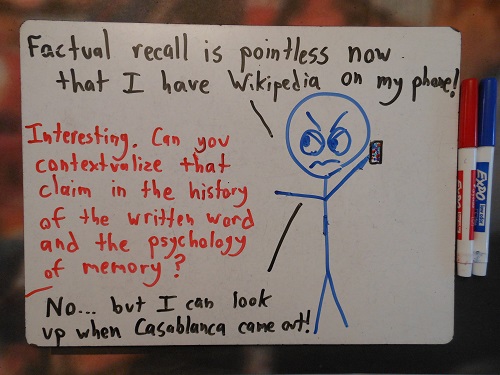 Factual recall is pointless now
that I have Wikipedia on my phone!
Interesting. Can you
contextualize that
claim in the history
of the written word
and the psychology
of memory?
No... but I can look
up when Casablanca came out!
EXPO
EXPO